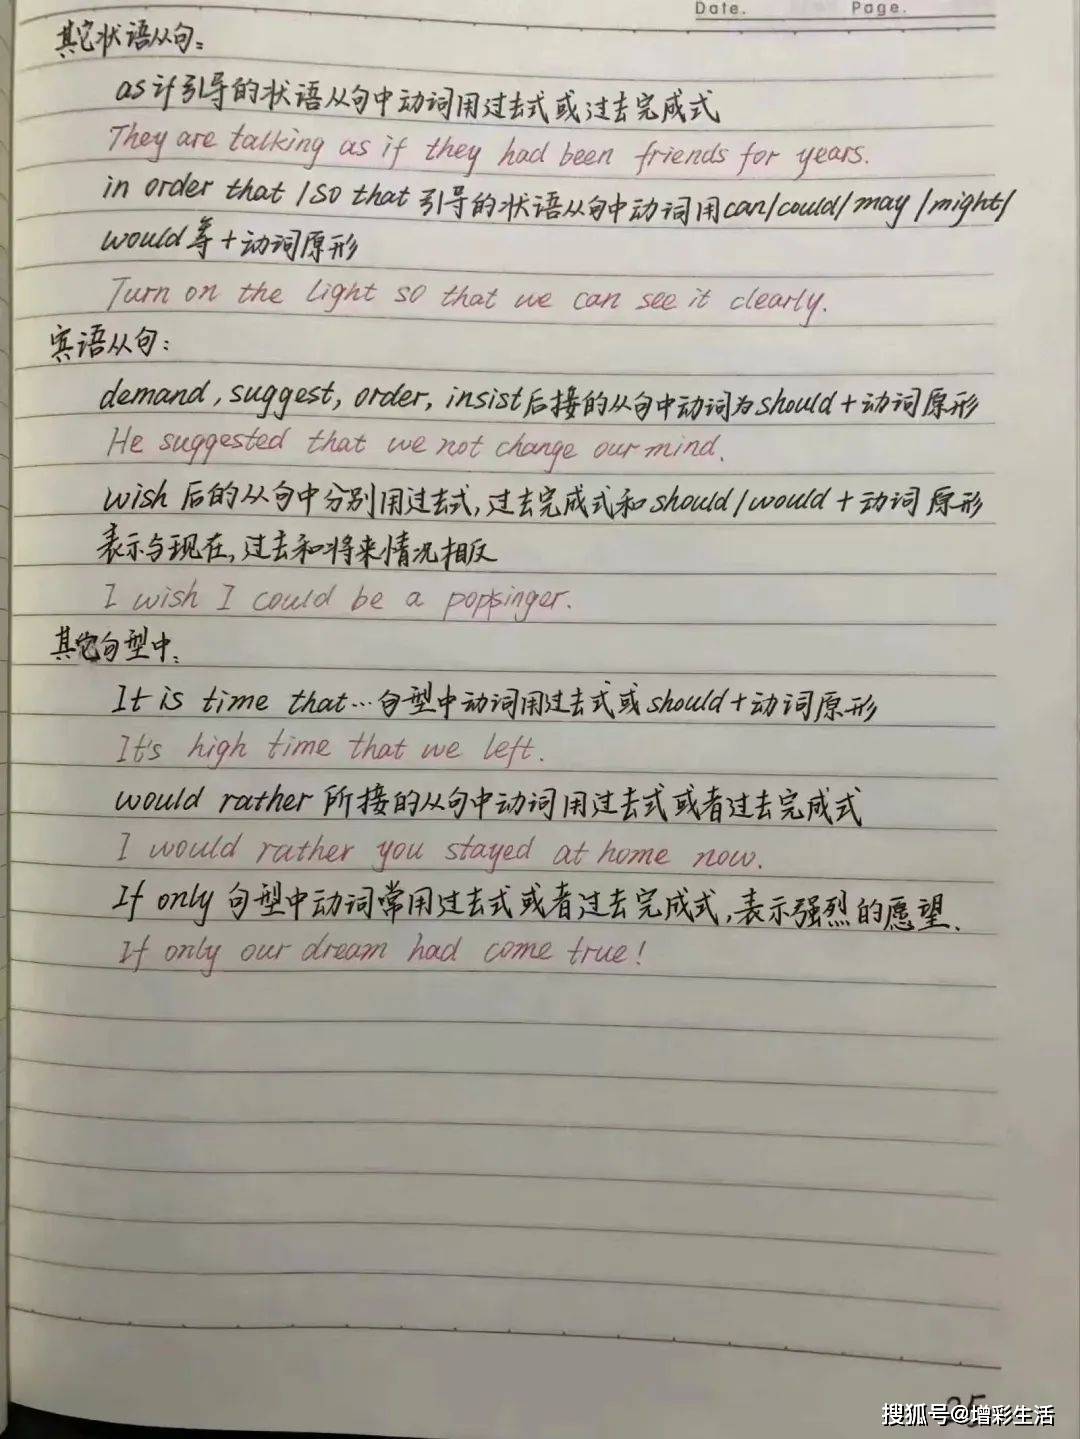 Date.
Page.
其它状语从句:
as if引导的状语从句中动词用过去式或过去完成式
They are talking as if they had been friends for years.
in order that / so that 引导的状语从句中动词用can/could/may/might/
would等+动词原形
Turn on the light so that we can see it clearly.
宾语从句:
demand, suggest, order, insist后接的从句中动词为should+动词原形
He suggested that we not change our mind.
wish 后的从句中分别用过去式,过去完成式和should/would+动词原形
表示与现在,过去和将来情况相反
I wish I could be a popsinger.
其它句型中:
It is time that…句型中动词用过去式或should+动词原形
It's high time that we left.
would rather 所接的从句中动词用过去式或者过去完成式
I would rather you stayed at home now.
If only 句型中动词常用过去式或者过去完成式,表示强烈的愿望.
If only our dream had come true!
搜狐号@增彩生活